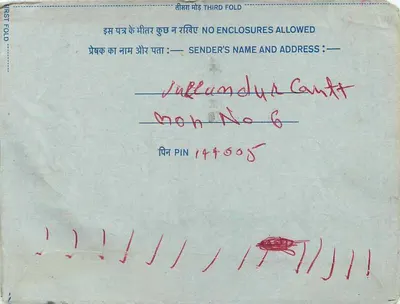 तीसरा मोड़ THIRD FOLD
FIRST FOLD
इस पत्र के भीतर कुछ न रखिए NO ENCLOSURES ALLOWED
प्रेषक का नाम और पता :— SENDER'S NAME AND ADDRESS :—
Jullundur Cantt
mon No 6
पिन PIN 144005